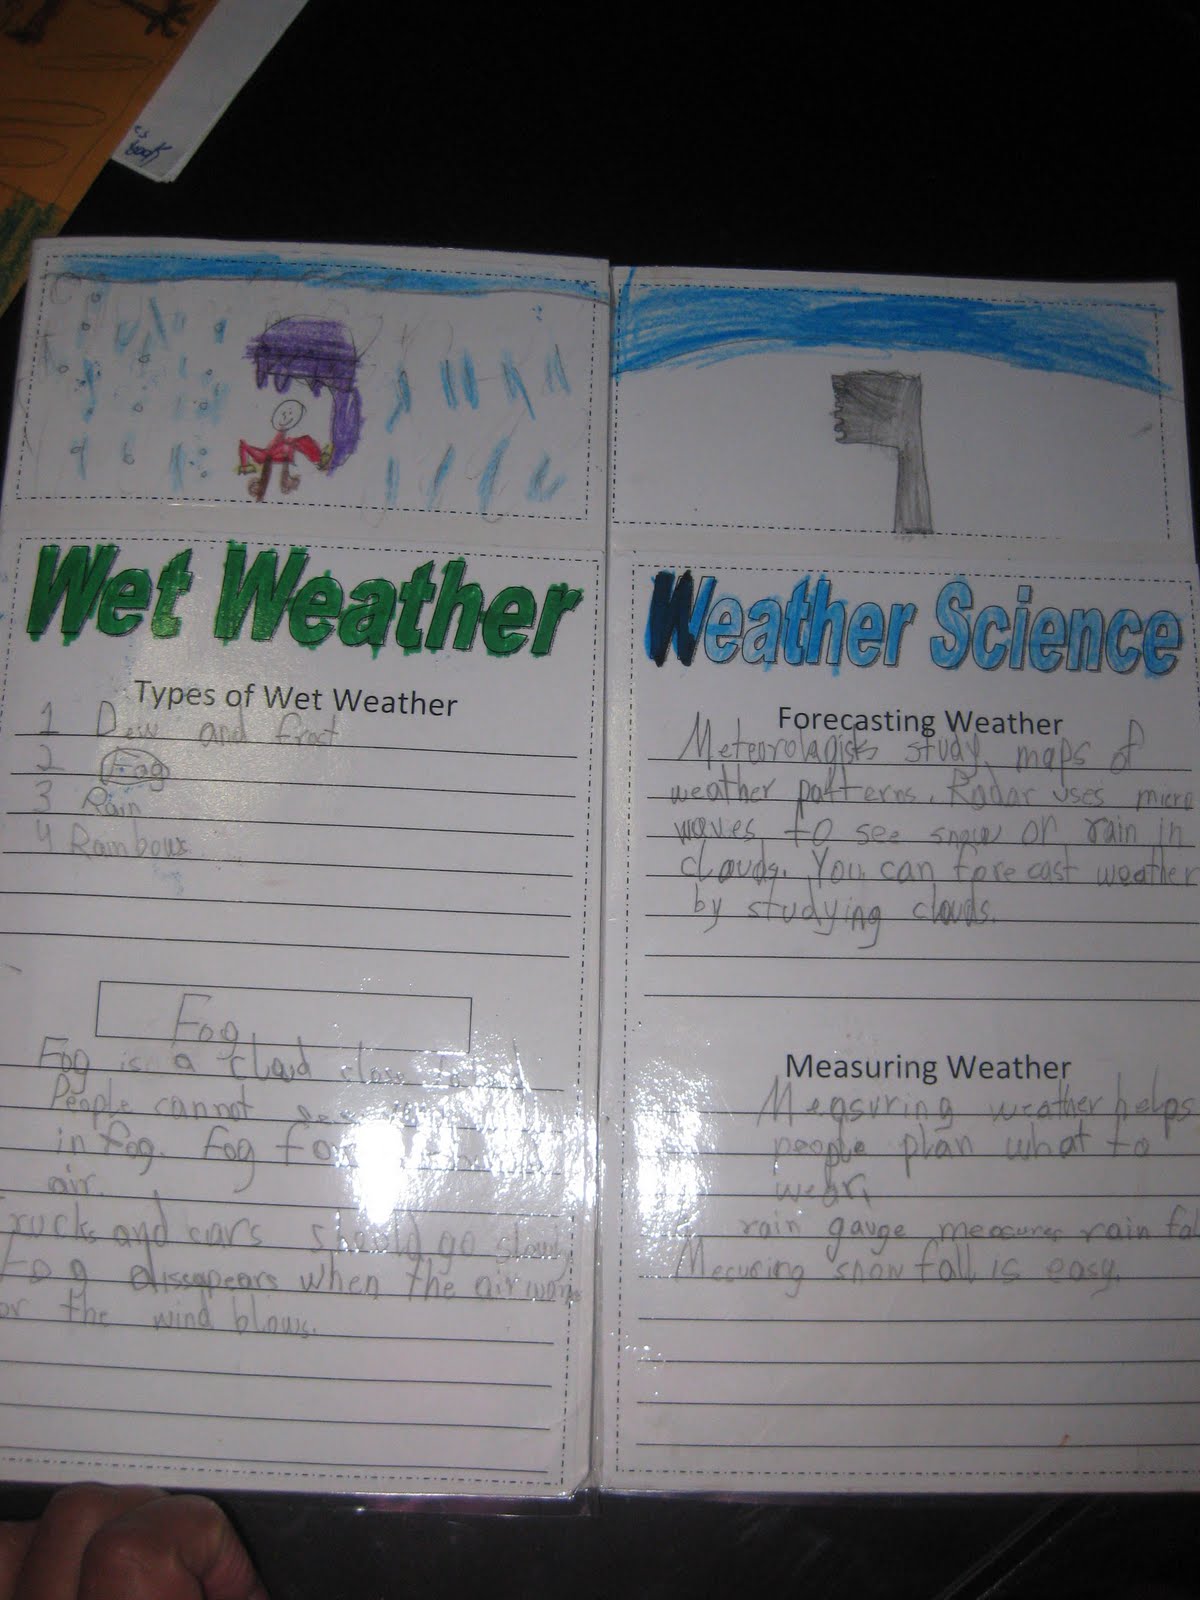 cs
book
Wet Weather
Types of Wet Weather
1 Dew and frost
2 Fog
3 Rain
4 Rainbows
Fog
Fog is a cloud close
People cannot see
in fog. Fog
air.
rucks and cars should go slowly.
Fog disseapears when the air warms
or the wind blows.
Weather Science
Forecasting Weather
Meteorologists study maps of
weather patterns. Radar uses micro
waves to see snow or rain in
clouds. You can fore cast weather
by studying clouds.
Measuring Weather
Measuring weather helps
people plan what to
wear.
rain gauge measures rain fal
Mesuring snow fall is easy.